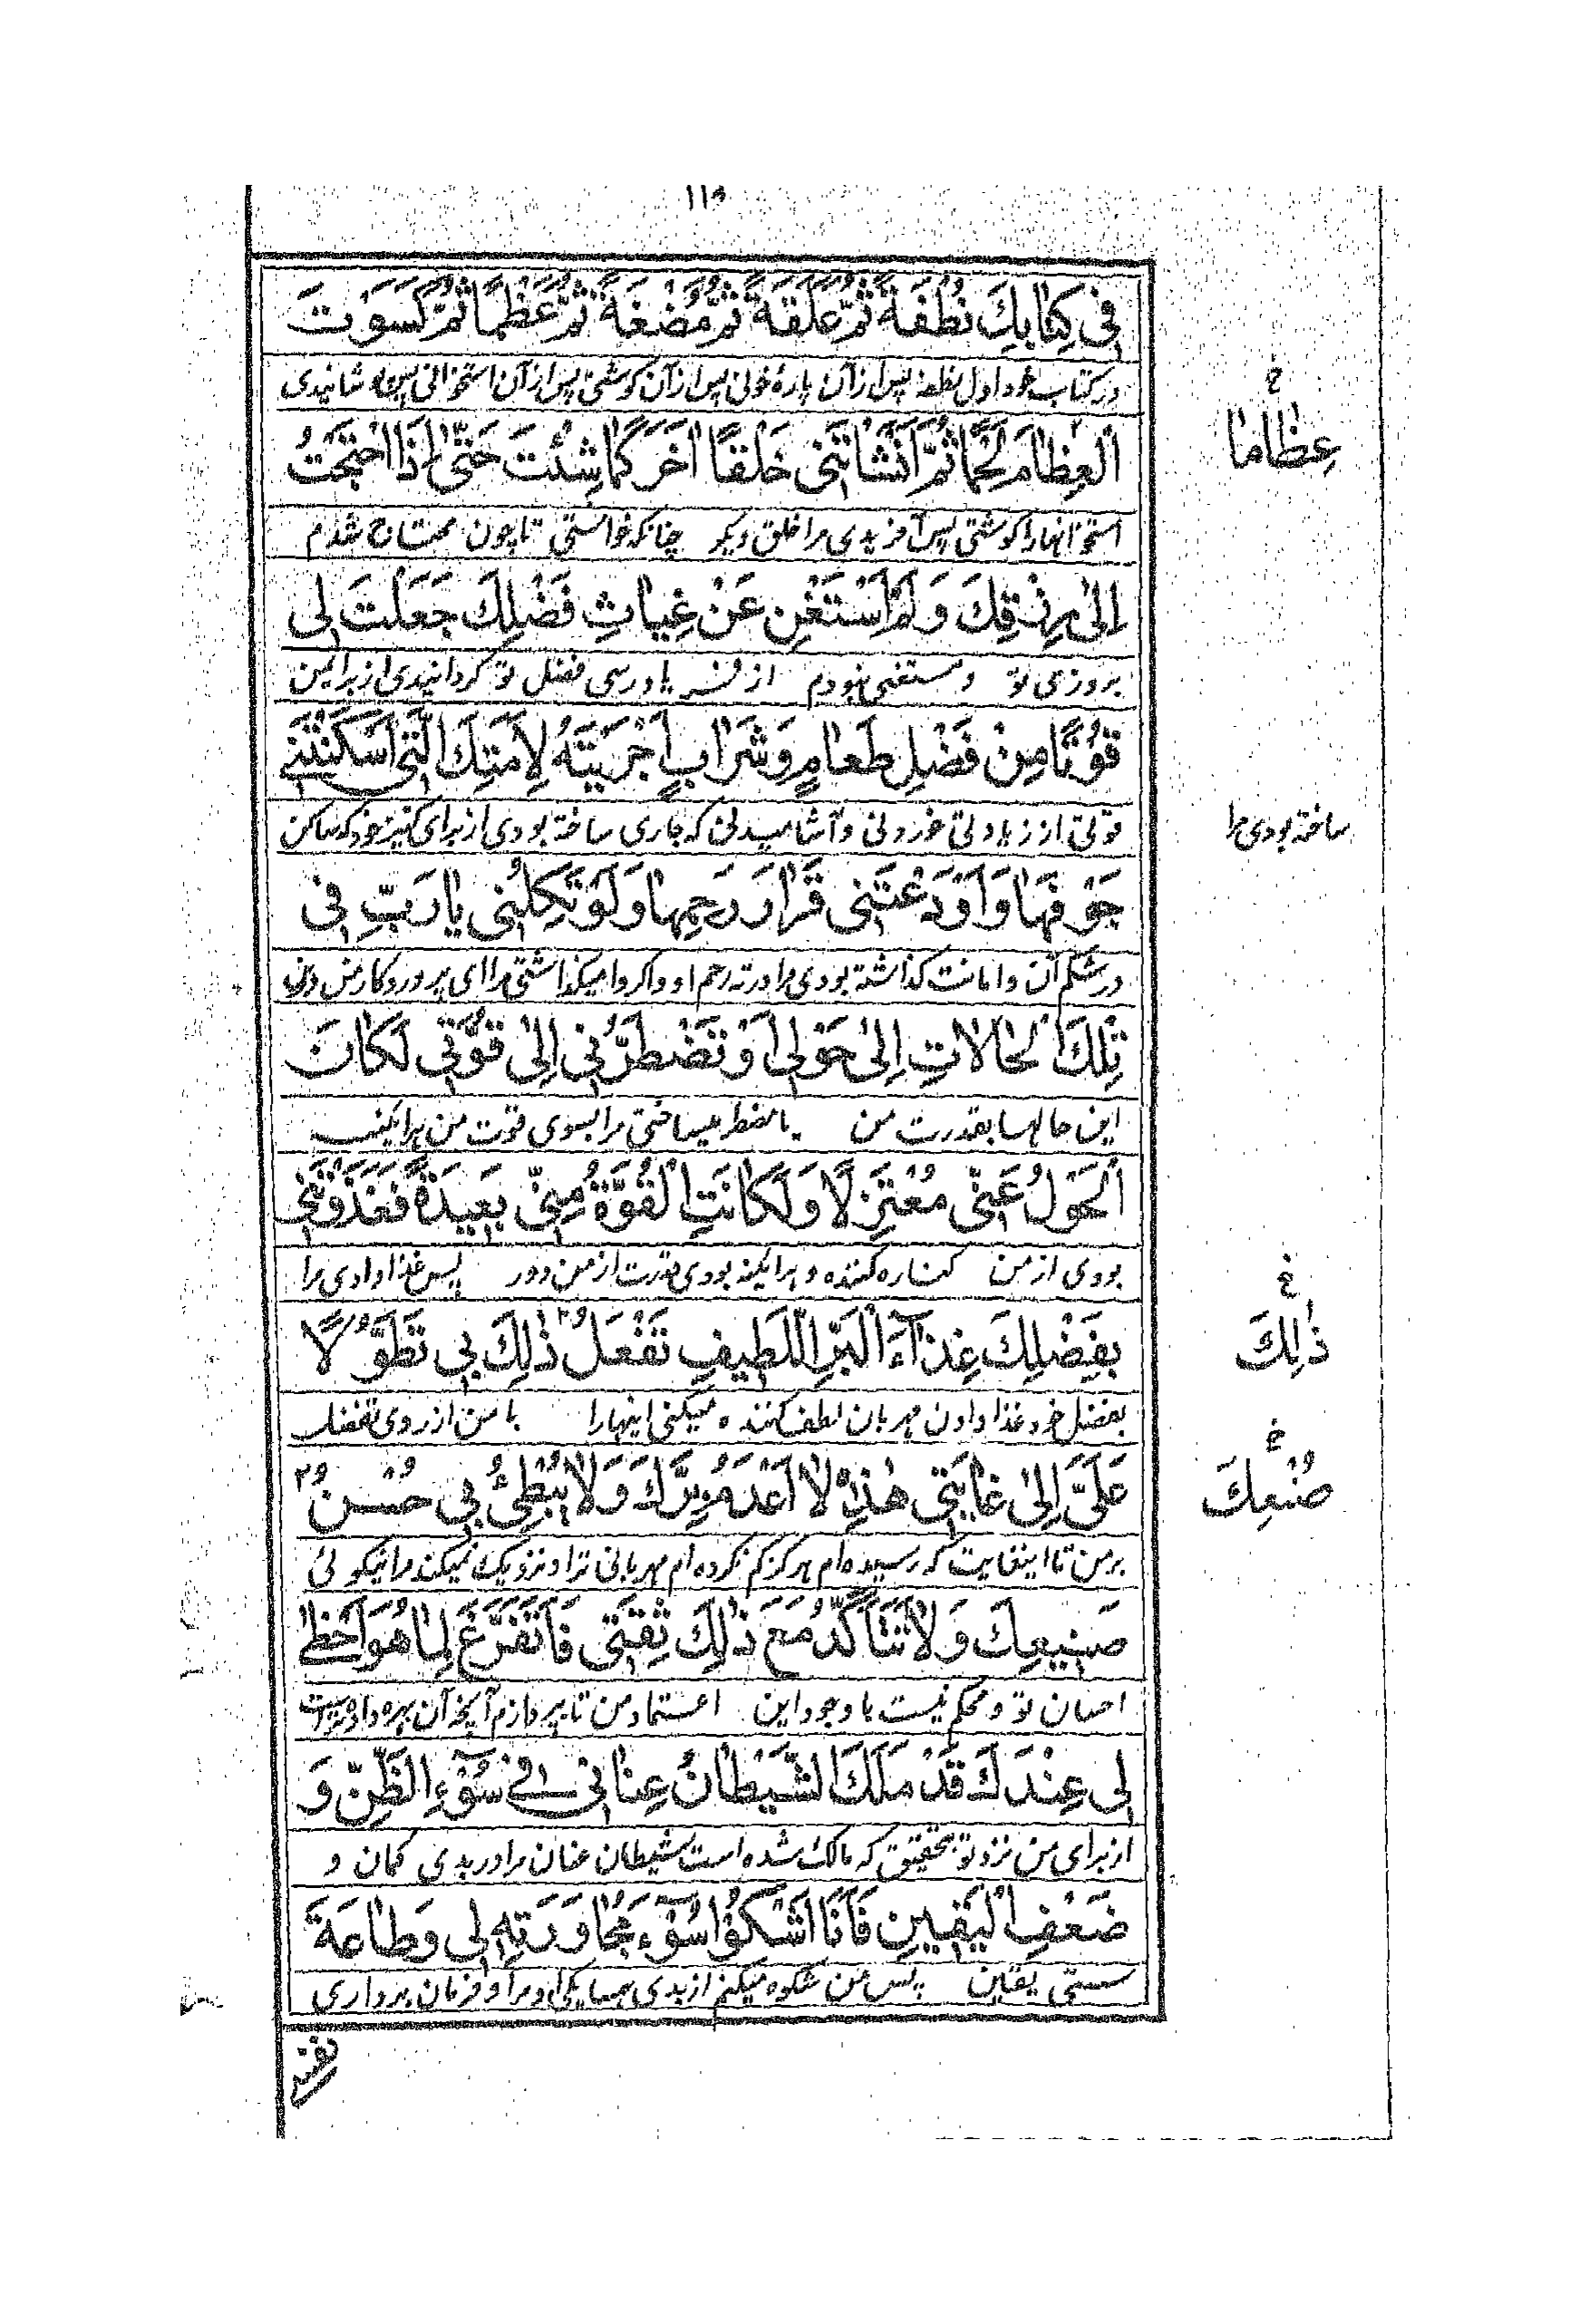 فِی کِتابِكَ نُطْفَةً ثُمَّ عَلَقَةً ثُمَّ مُضْغَةً ثُمَّ عَظْمًا ثُمَّ كَسَوْتَ
در کتاب خود اول نطفه پس از آن پارهٔ خونی پس از آن گوشتی پس از آن استخوانی پس پوشانیدی
عِظٰامًا
الْعِظٰامَ لَحْمًا ثُمَّ اَنْشَاْتَنی خَلْقًا اٰخَرَ كَمٰا شِئْتَ حَتّٰی اِذَا احْتَجْتُ
استخوانها را گوشتی پس آفریدی مرا خلق دیگر چنانکه خواستی تا چون محتاج شدم
اِلیٰ رِزْقِكَ وَ لَمْ اَسْتَغْنِ عَنْ غِیٰاثِ فَضْلِكَ جَعَلْتَ لی
بروزی تو و مستغنی نبودم از فریادرسی فضل تو گردانیدی از برای من
قُوْتًا مِنْ فَضْلِ طَعٰامٍ وَ شَرٰابٍ اَجْرَیْتَهُ لِاَمَتِكَ الَّتی اَسْكَنْتَنی
قوتی از زیادتی خوردنی و آشامیدنی که جاری ساخته بودی از برای کنیز خود که ساکن
ساخته بودی مرا
جَوْفَهٰا وَ اَوْدَعْتَنی قَرٰارَ رَحِمِهٰا وَ لَوْ تَكِلُنی یٰا رَبِّ فی
در شکم آن و امانت گذاشته بودی مرا در ته رحم او و اگر وا میگذاشتی مرا ای پروردگار من در
تِلْكَ الْحٰالاتِ اِلیٰ حَوْلی اَوْ تَضْطَرُّنی اِلیٰ قُوَّتی لَكٰانَ
این حالها بقدرت من یا مضطر میساختی مرا بسوی قوت من هر آینه
الْحَوْلُ عَنّی مُعْتَزِلًا وَ لَكٰانَتِ الْقُوَّةُ مِنّی بَعِیدَةً فَغَذَوْتَنی
بودی از من کناره کننده و هر آینه بودی قدرت از من دور پس غذا دادی مرا
بِفَضْلِكَ غِذٰآءَ الْبَرِّ اللَّطِیفِ تَفْعَلُ ذٰلِكَ بی تَطَوُّلًا
ذٰلِكَ
بفضل خود غذا دادن مهربان لطف کننده میکنی اینها را با من از روی تفضل
عَلَیَّ اِلیٰ غٰایَتی هٰذِهِ لٰا اَعْدَمُ بِرَّكَ وَ لٰا یُبْطِئُ بی حُسْنُ
صُنْعِكَ
بر من تا این غایت که رسیده‌ام هرگز کم نکرده‌ام مهربانی ترا و نزدیک نمیکند مرا نیکوئی
صَنِیعِكَ وَ لٰا تَتَاَكَّدُ مَعَ ذٰلِكَ ثِقَتی فَاَتَفَرَّغَ لِمٰا هُوَ اَحْظیٰ
احسان تو و محکم نیست با وجود این اعتماد من تا بپردازم آنچه آن بهره
لی عِنْدَكَ قَدْ مَلَكَ الشَّیْطٰانُ عِنٰانی فی سُوٓءِ الظَّنِّ وَ
از برای من نزد تو بتحقیق که مالک شده است شیطان عنان مرا در بدی گمان و
ضَعْفِ الْیَقِینِ فَاَنَا اَشْكُوْا سُوٓءَ مُجٰاوَرَتِهِ لی وَ طٰاعَةَ
سستی یقین پس من شکوه میکنم از بدی همسایگی او مرا و فرمان برداری
نفسی